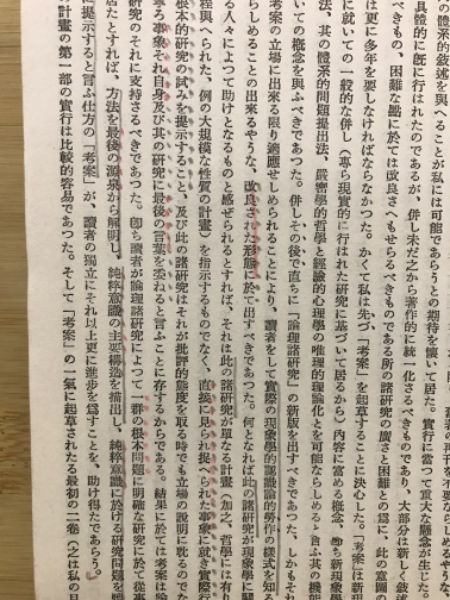 の體系的敘述を與へることが私には可能であらうとの期待を懷いて居た。實行に當つて重大な懸念が生じた。
具體的に旣に行はれたのであるが、併し未だ之から著作的に統一化さるべきものであり、大部分は新しく敍
べきもの、困難な點に於ては改良さへもせらるべきものである所の諸研究の廣さと困難との爲に、此の意圖の
は更に多年を要しなければならなかつた。かくて私は先づ「考案」を起草することに決心した。「考案」は新
に就いての一般的な併し（專ら現實的に行はれた研究に基づいて居るから）內容に富める槪念、卽ち新現象學
法、其の體系的問題提出法、嚴密學的哲學と經驗的心理學の唯理的理論化とを可能ならしめると言ふ其の機能
いての槪念を與ふべきであつた。併しその後で直ちに「論理諸研究」の新版を出すべきであつた、しかもそれ
考案の立場に出來る限り適應せしめられることにより、讀者をして實際の現象學的認識論的勞作の樣式を知る
らしめることの出來るやうな、改良された形態に於て出すべきであつた。何となれば此の諸研究が現象學に關
る人々によつて助けとなるものと感ぜられるとすれば、それは此の諸研究が單なる計畫（加之、哲學には有り
程與へられた、例の大規模な性質の計畫）を指示するものでなく、直接に見られ捉へられた事象に就き實際行
根本的研究の試みを提示すること、及び此の諸研究はそれが批評的態度を取る時でも立場の說明に耽るのでな
寧ろ事象それ自身及び其の研究に最後の言葉を委ねると言ふことに存するからである。結果に於ては考案は論
研究のそれに支持さるべきであつた。卽ち讀者が論理諸研究によつて一群の根本問題に明確な研究に於て從事
居たとすれば、方法を最後の源泉から解明し、純粹意識の主要構造を描出し、純粹意識に於ける研究問題を
に提示すると言ふ仕方の「考案」が、讀者の獨立にそれ以上更に進步を爲すことを、助け得たであらう。
計畫の第一部の實行は比較的容易であつた。そして「考案」の一氣に起草されたる最初の二卷（之は私の